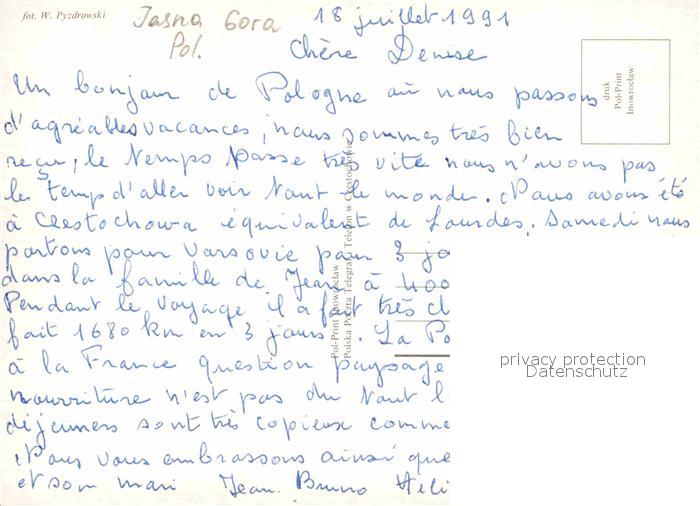 fot. W. Pyzdrowski
Jasna Gora
Pol.
18 juillet 1991
Chère Denise
Un bonjour de Pologne où nous passons
d'agréables vacances, nous sommes très bien
reçu, le temps passe très vite nous n'avons pas
le temp d'aller voir tout le monde. Nous avons été
à Czestochowa équivalent de Lourdes. Samedi nous
partons pour Varsovie pour 3 jo
dans la famille de Jean à 400
Pendant le voyage il a fait très ch
fait 1680 km en 3 jours. La Po
à la France question paysage
nourriture n'est pas du tout l
déjeuners sont très copieux comme
Nous vous embrassons ainsi que
et son mari Jean. Bruno Héli
druk
Pol-Print
Inowrocław
Pol-Print Inowrocław
Polska Poczta Telegraf Telefon w Częstochowie
privacy protection
Datenschutz